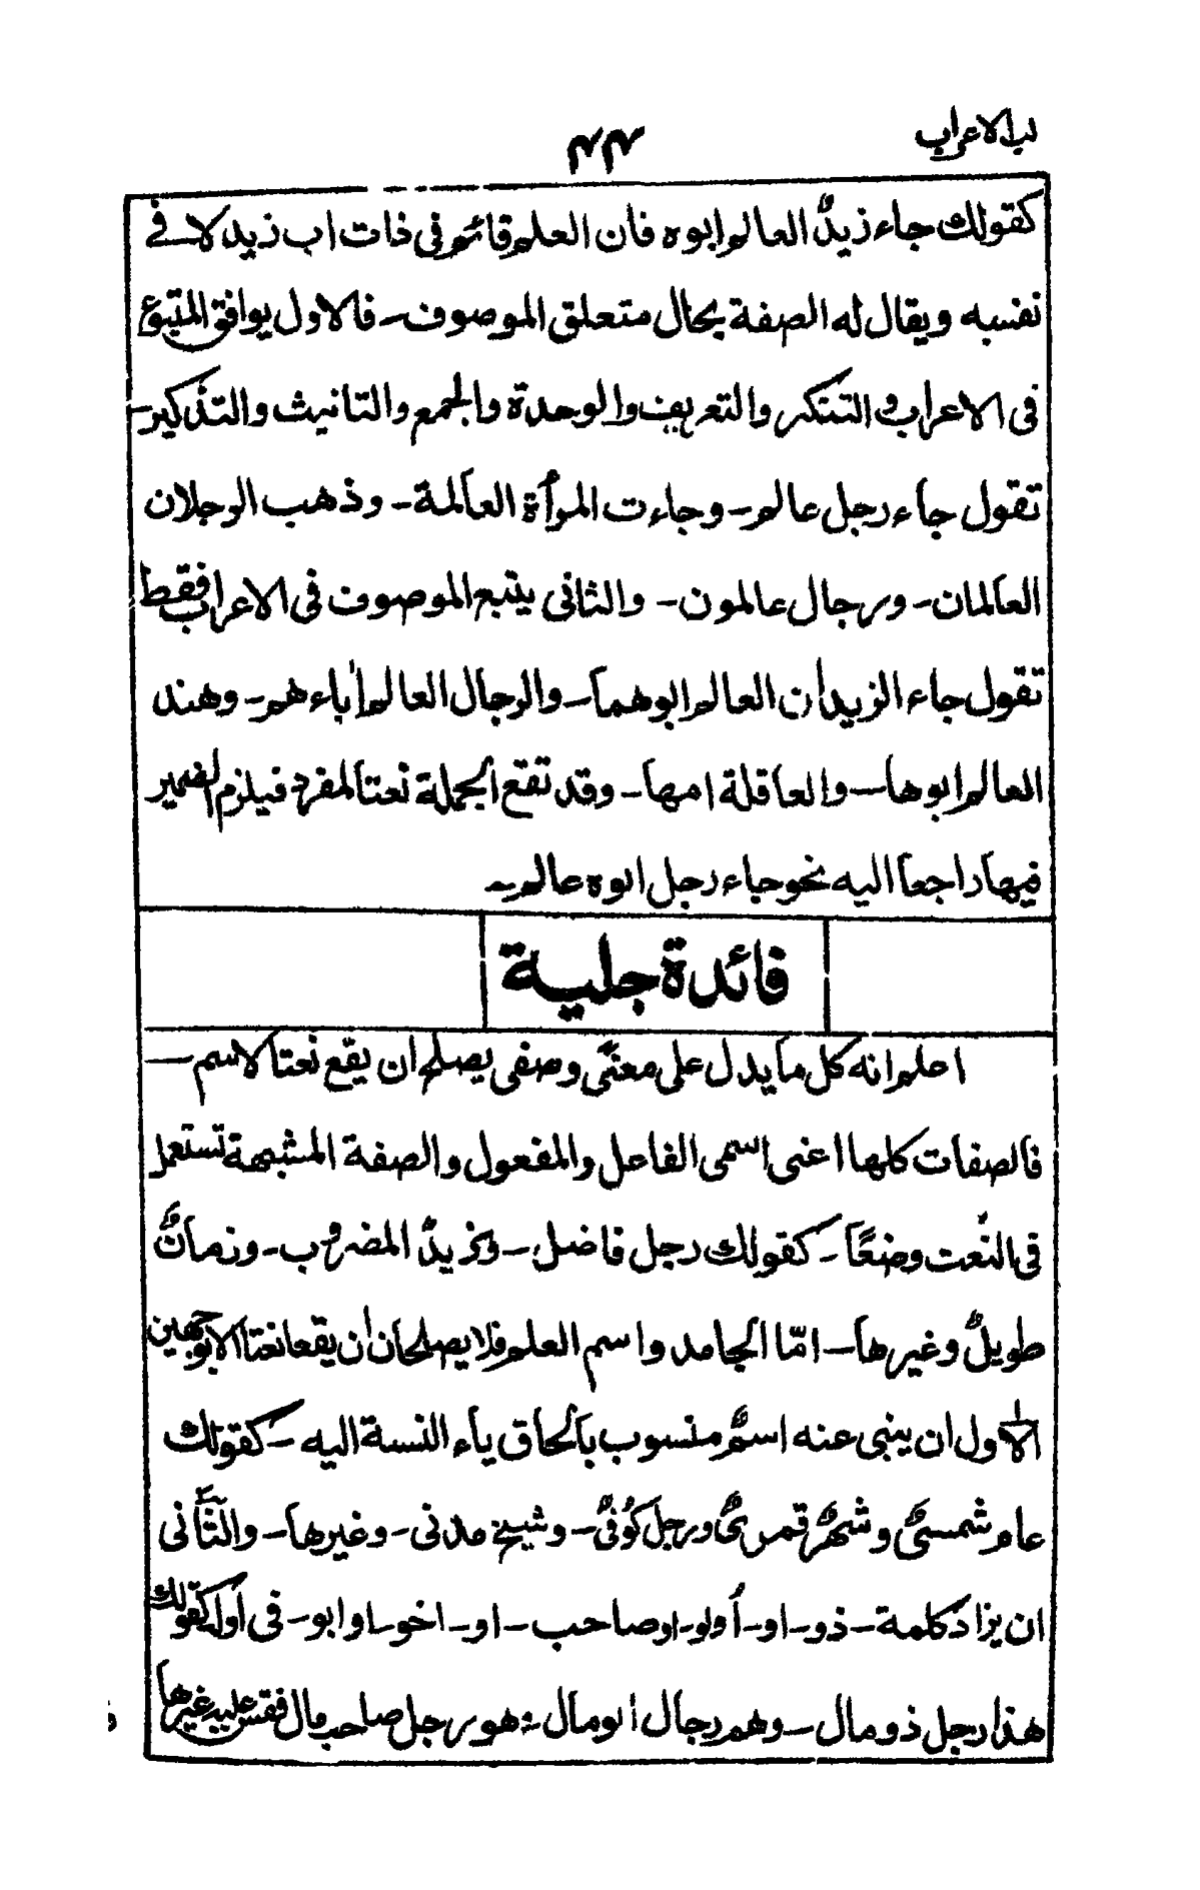 لب الاعراب
۴۴
كقولك جاء زيدٌ العالم ابوه فان العلم قائم فى ذات اب زيد لا فے
نفسه ويقال له الصفة بحال متعلق الموصوف۔ فالاول يوافق المتبوع
فى الاعراب و التنكر والتعريف والوحدة والجمع والتانيث والتذكير۔
تقول جاء رجل عالم۔ وجاءت المرأة العالمة۔ وذهب الرجلان
العالمان۔ ورجال عالمون۔ والثانى يتبع الموصوف فى الاعراب فقط
تقول جاء الزيدان العالم ابوهما۔ والرجال العالم اباءهم۔ وهند
العالم ابوها۔ والعاقلة امها۔ وقد تقع الجملة نعتا لمفرد فيلزم الضمير
فيها راجعا اليه نحو جاء رجل ابوه عالم۔
فائدة جلية
اعلم انه كل ما يدل على معنًى وصفى يصلح ان يقع نعتا لاسم۔
فالصفات كلها اعنى اسمى الفاعل والمفعول والصفة المشبهة تستعمل
فى النعت وضعًا۔ كقولك رجل فاضل۔ وزيدٌ المضروب۔ وزمانٌ
طويلٌ وغيرها۔ امّا الجامد واسم العلم فلا يصلحان ان يقعا نعتا الا بوجهين
الاول ان يبنى عنه اسمٌ منسوب بالحاق ياء النسة اليه۔ كقولك
عام شمسىٌّ وشهرٌ قمرىٌّ ورجل كُوفىٌّ۔ وشيخ مدنى۔ وغيرها۔ والثانى
ان يزاد كلمة۔ ذو۔ او۔ أولو۔ او صاحب۔ او۔ اخو۔ او ابو۔ فى اوله كقولك
هذا رجل ذو مال۔ وهم رجال الو مال۔ هو رجل صاحب مال فقس عليه غيرها